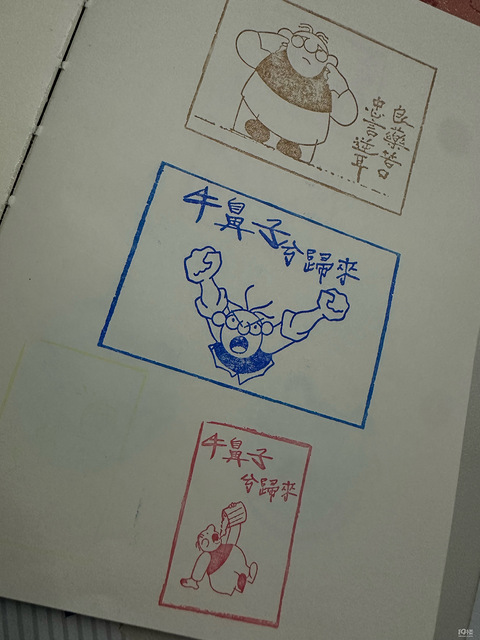 良藥苦口
忠言逆耳
牛鼻子
兮歸來
牛鼻子
兮歸來
19楼